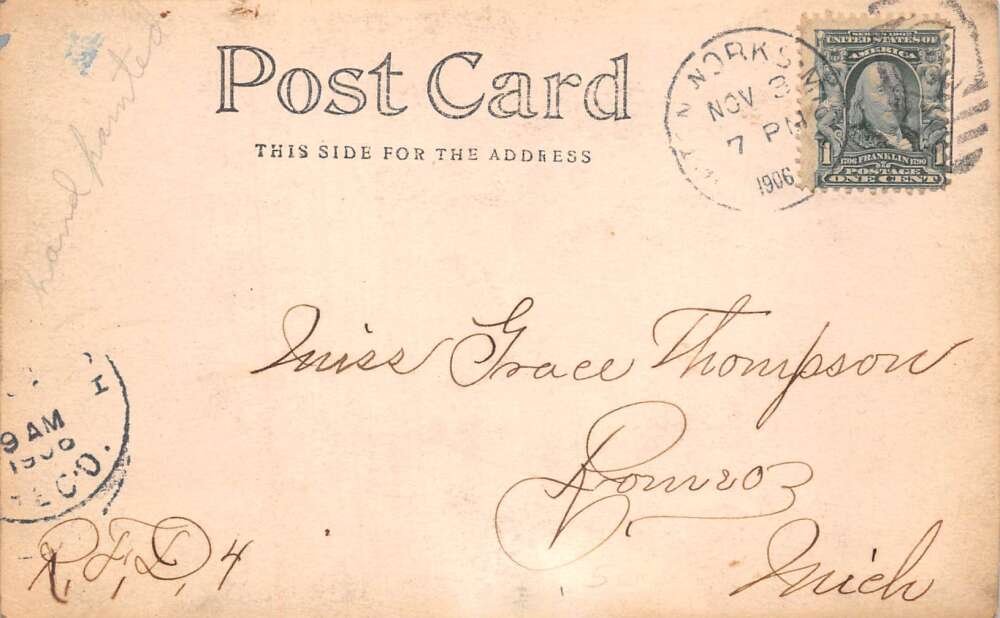 hand painted
Post Card
THIS SIDE FOR THE ADDRESS
NOV
7 PM
1906
SERIES 1902
UNITED STATES OF
AMERICA
1 1706 FRANKLIN 1790 1
POSTAGE
ONE CENT
Miss Grace Thompson
Romeo
Mich
R, F, D, 4
9 AM
1906
REC'D.